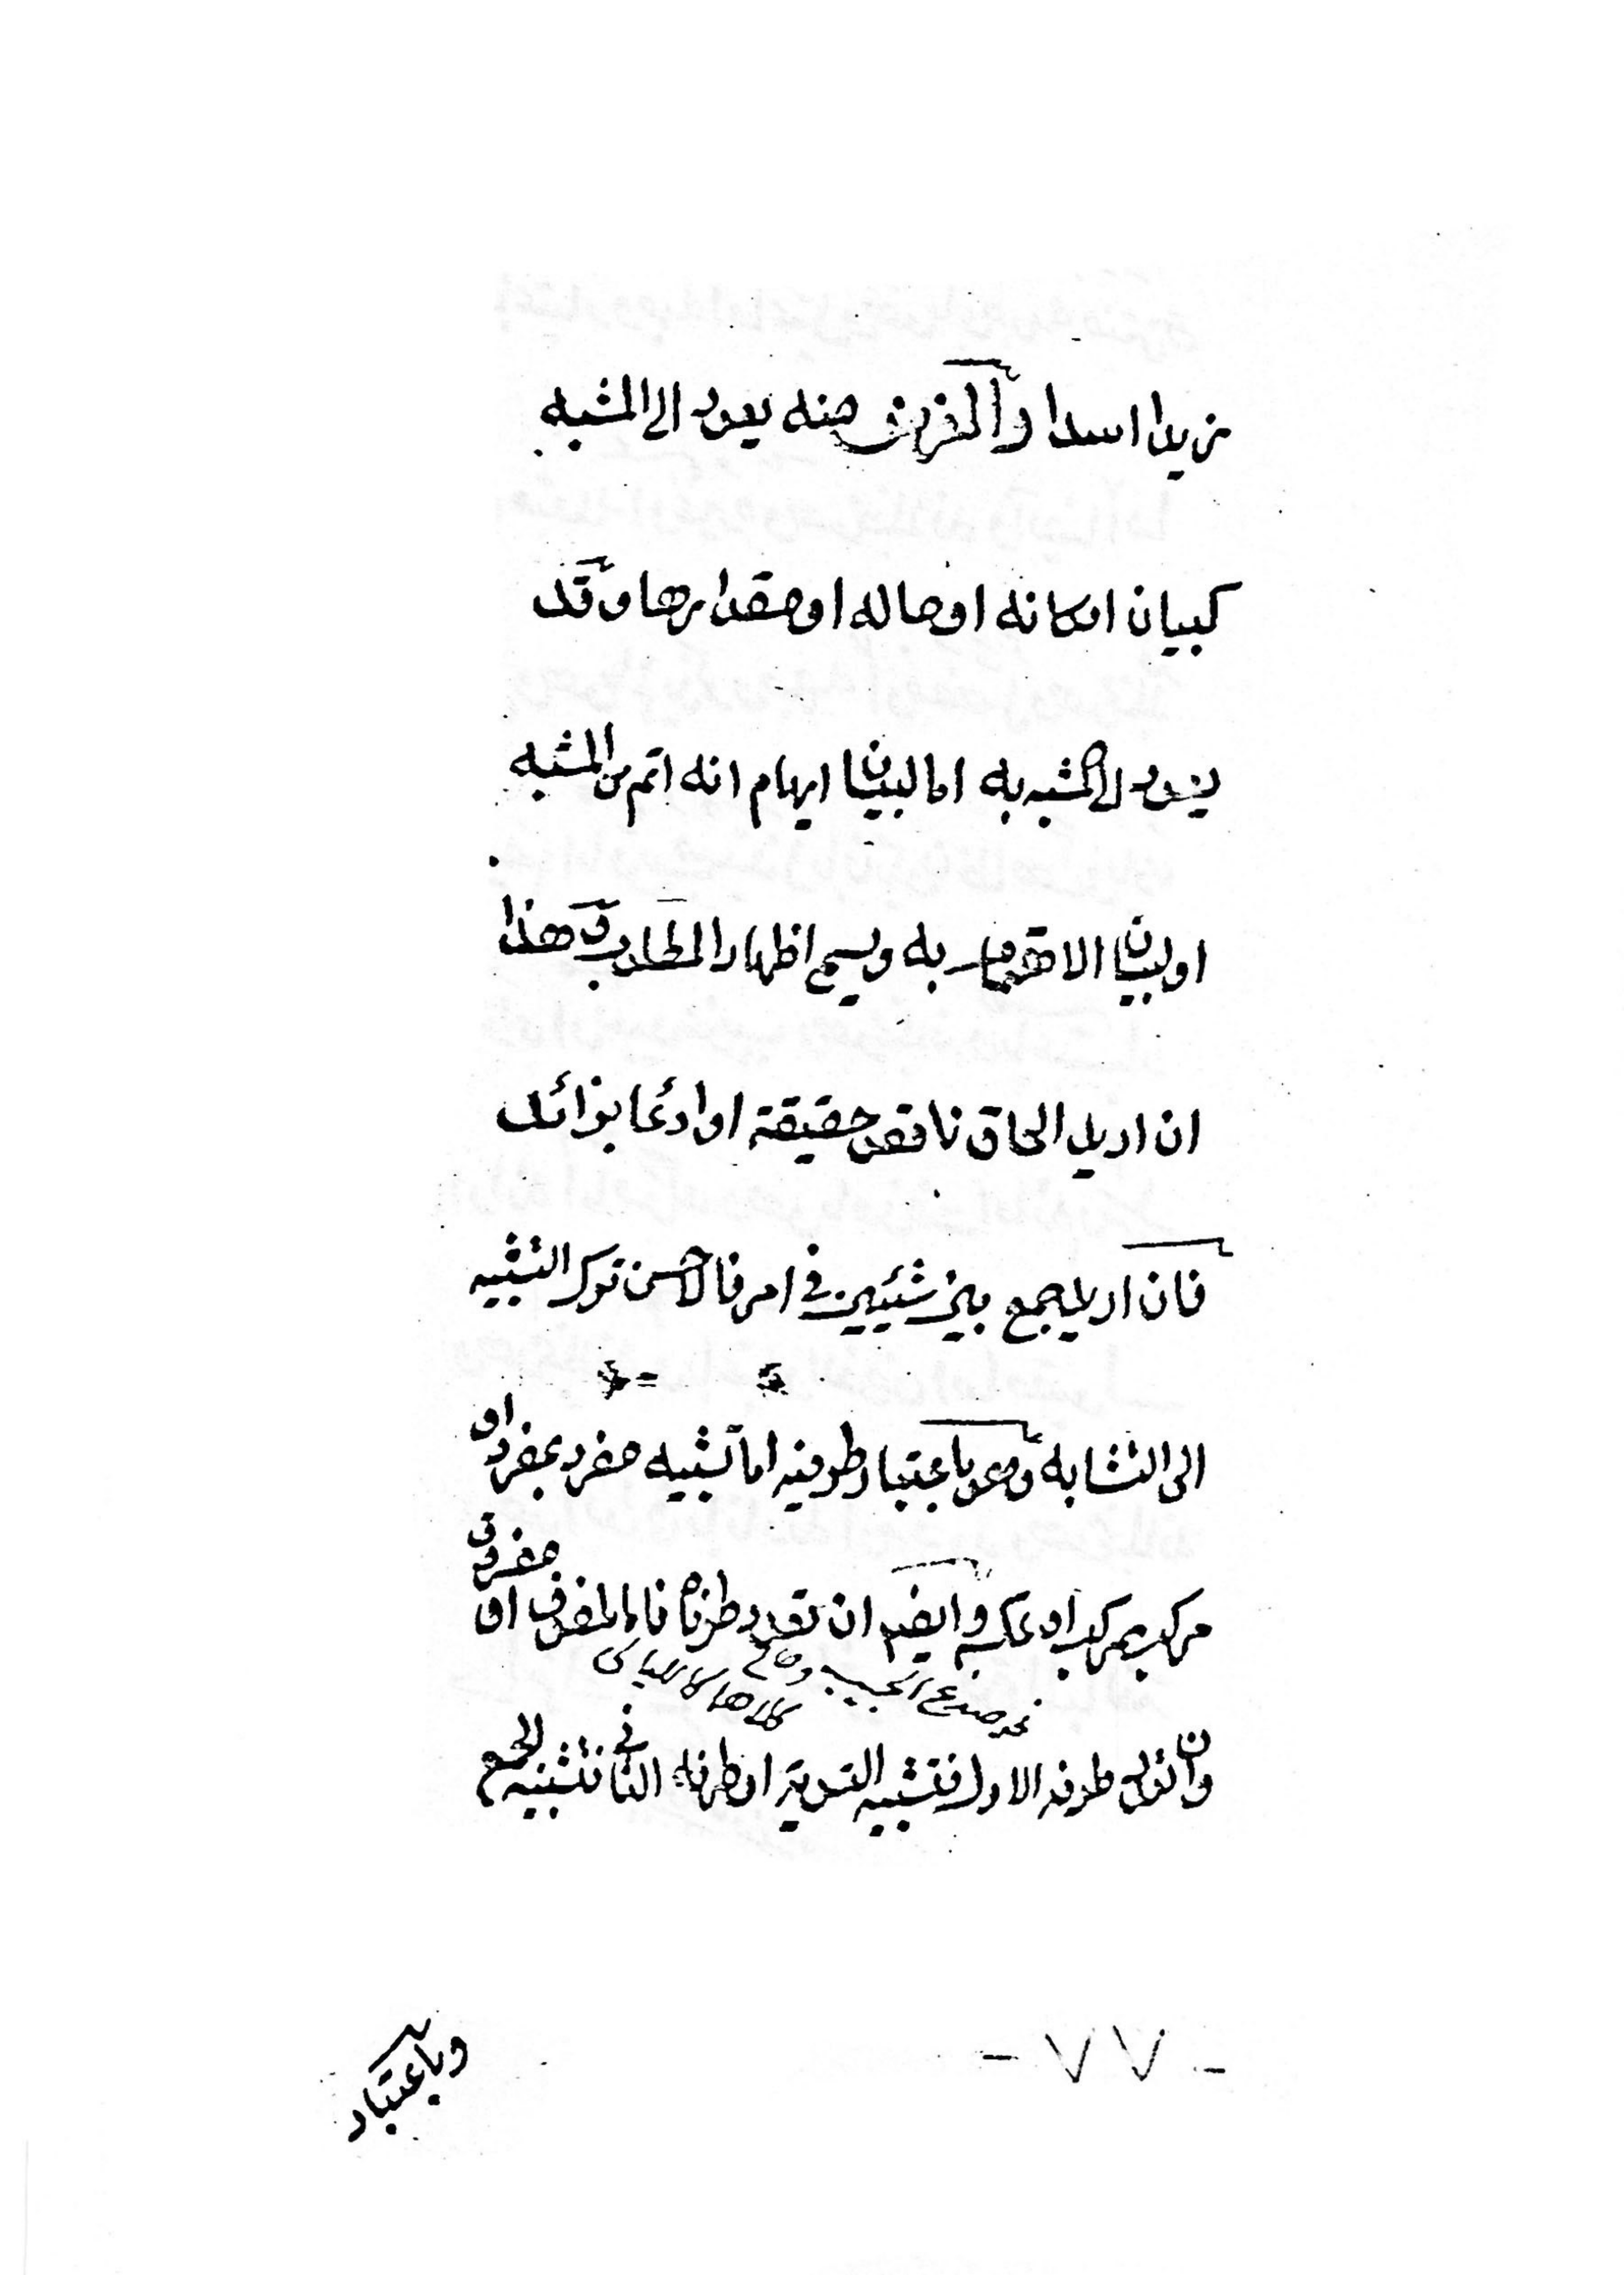 زيدا اسدا والغرض منه يعود الى المشبه
كبيان امكانه او حاله او مقدارها وقد
يعود الى المشبه به اما لبيان ايهام انه اتم من المشبه
او لبيان الاهتمام به ويسمى اظهار المطلوب هذا
ان اريد الحاق ناقص حقيقة او ادعا بزائد
فان اريد جمع بين شيئين في امر فالاحسن ترك التشبيه
الى التشابه وهو باعتبار طرفيه اما تشبيه مفرد بمفرد او
مركب بمركب او عكسه وايضا ان تعدد طرفاه فاما ملفوف او مفروق
صدغ الحبيب وحالي
كلاهما كالليالى
وان تعدد طرفه الاول فتشبيه التسوية او طرفه الثاني فتشبيه الجمع
- ٧٧ -
وباعتبار